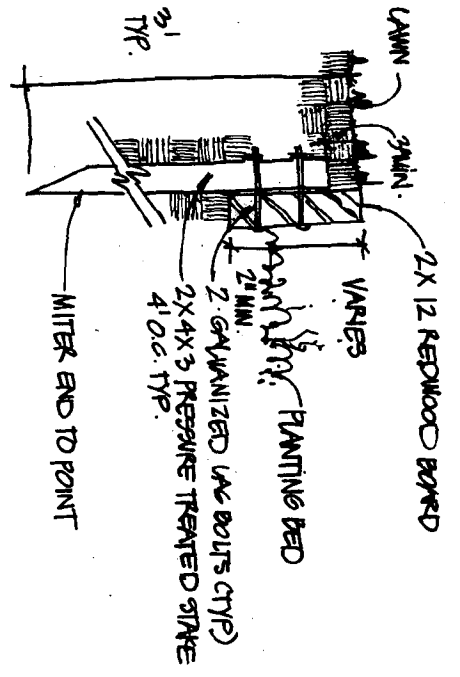 LAWN
3" MIN.
2X12 REDWOOD BOARD
VARIES
3'
TYP.
PLANTING BED
2" MIN.
2 GALVANIZED LAG BOLTS (TYP)
2X4X3 PRESSURE TREATED STAKE
4' O.C. TYP.
MITER END TO POINT